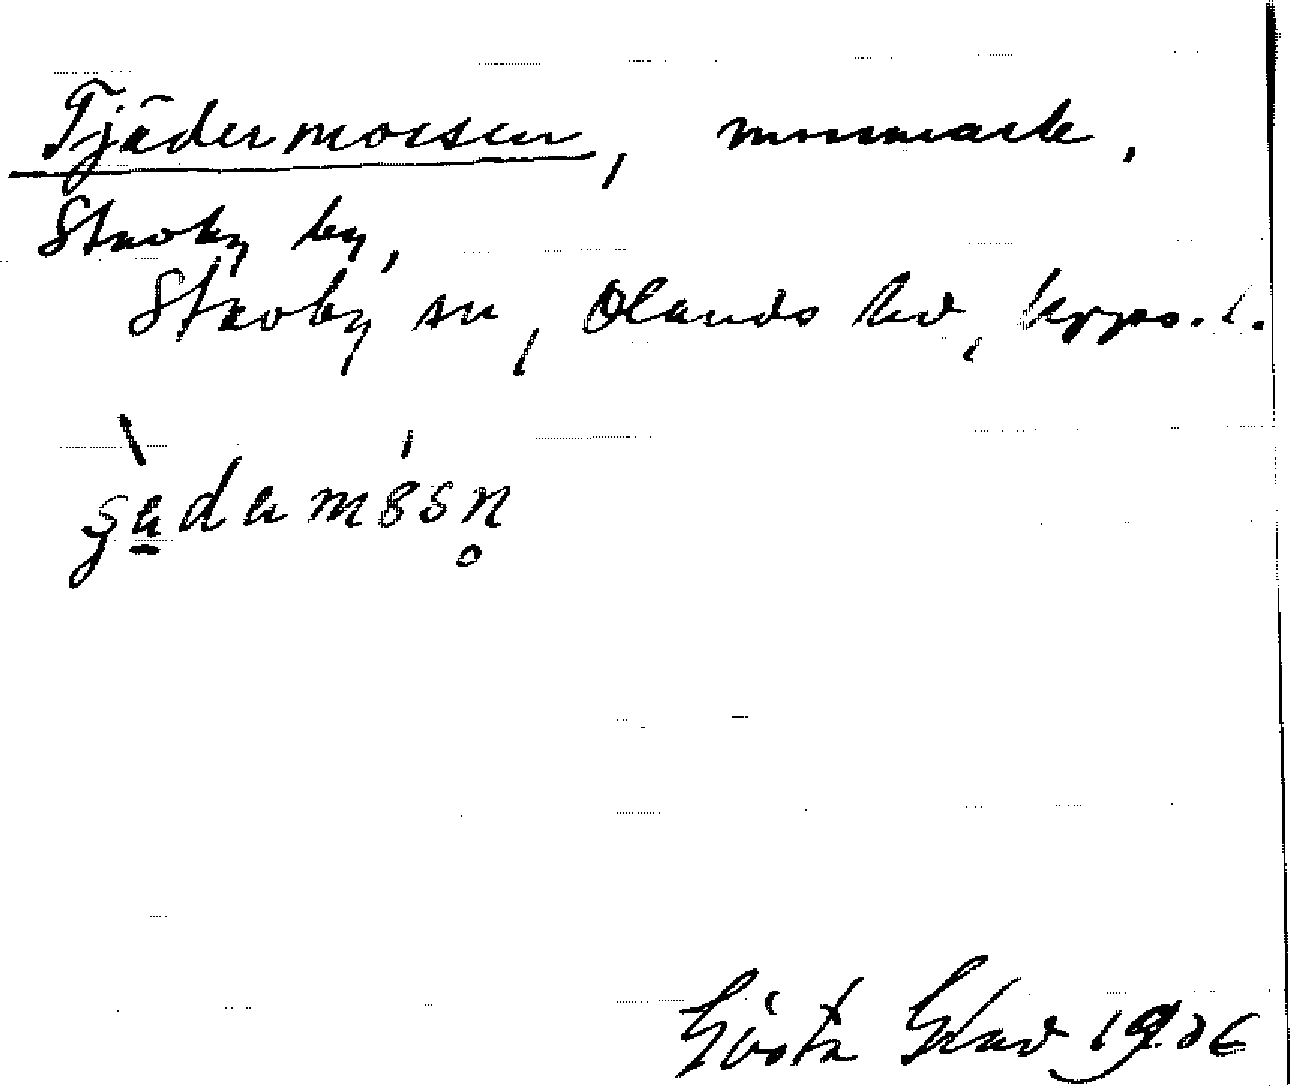 Tjädermossen, mossmark.
Stavby by,
Stavby sn, Olands hd, Upps. l.
Gösta Glad 1936